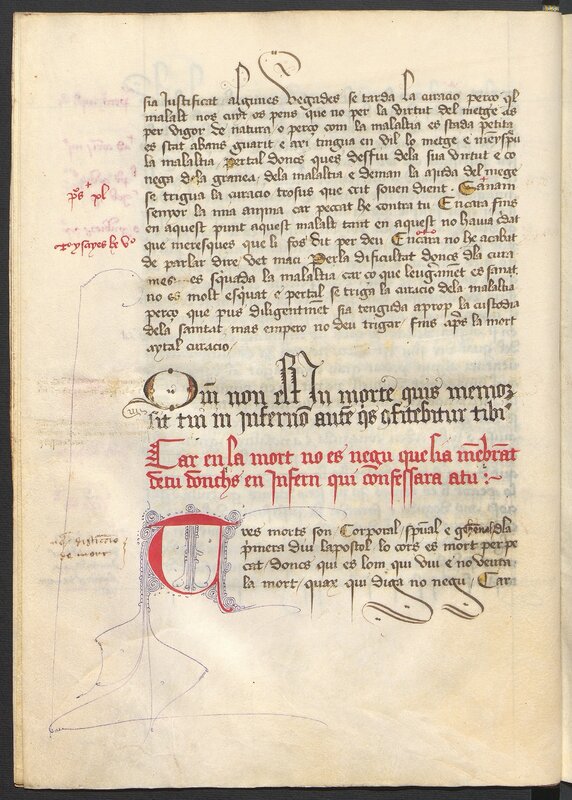 sia Justificat algunes vegades se tarda la curacio perço q̄l
malalt nos cur̄t os pens que no per la virtut del metge os
per vigor de natura, o perço com la malaltia es stada petita
es stat abans guarit e axi tingua en vil lo metge e
la malaltia, Pertal doncs ques desfiu dela sua virtut e co
nega dela granea, dela malaltia e deman la ajuda del mege
se trigua la curacio trosus que crit souen dient. Sanam
senyor la mia anima car peccat he contra tu Encara fins
en aquest punt aquest malalt tant en aquest no hauia
que meresques que li fos dit per deu Encara no he acabat
de parlar dire vet maci Per la dificultat doncs dla cura
mes es squada la malaltia car co que leugāment es sanat
no es molt esquat e pertal se triga la curacio dela malaltia
perço que pus diligentment sia tenguda aprop la custodia
dela sanitat, mas empero no deu trigar, fins ap̄s la mort
aytal curacio,
p̄s pl
ysayes
Qm̄ non est In morte quis memor
sit tui in inferno aute q̄s ɔfitebitur tibi
Car en la mort no es negu que sia mēbrat
detu dōnchs en Infern qui cōnfessara atu :~
Tres morts son Corporal, sp̄ual e dla
p̄mera diu lapostol lo cors es mort per pe
cat, doncs qui es lom qui viu e no veura
la mort, quax qui diga no negu, Car
distinccio
de mort